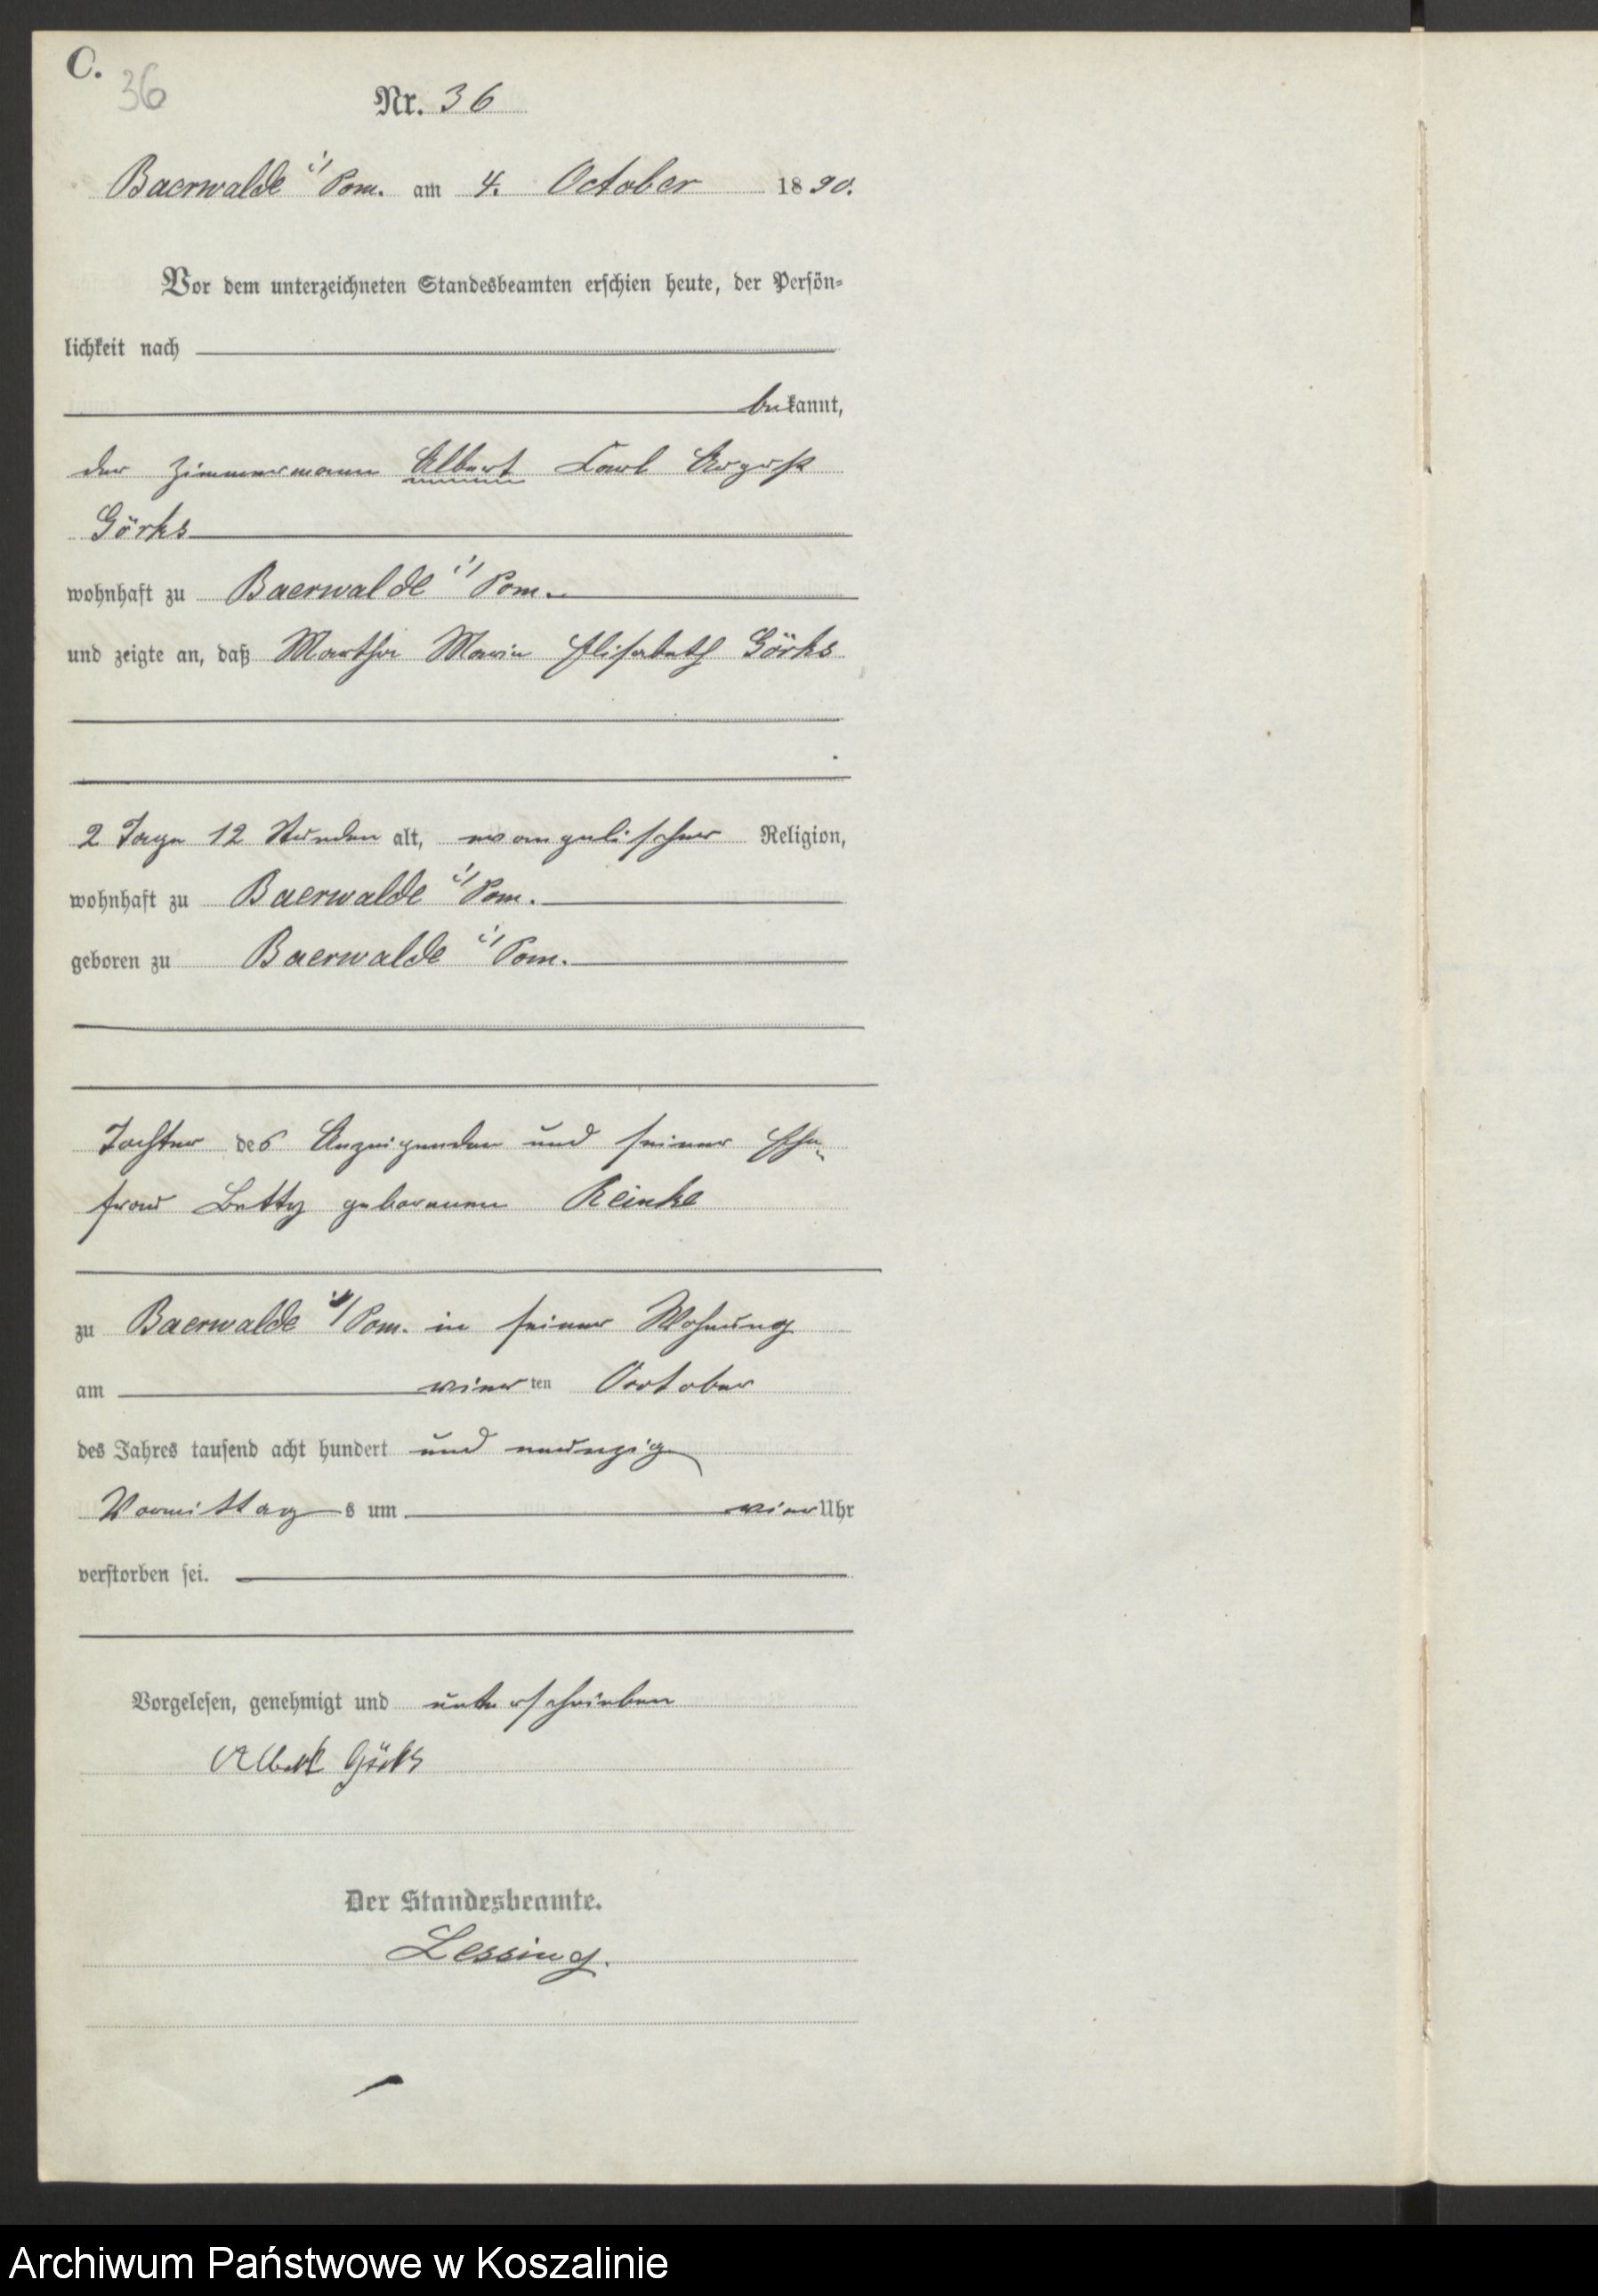 C.
36
Nr. 36
Baerwalde i/Pom. am 4. October 1890.
Vor dem unterzeichneten Standesbeamten erschien heute, der Persön-
lichkeit nach
bekannt,
der Zimmermann Albert Carl August
Görks
wohnhaft zu Baerwalde i/Pom.
und zeigte an, daß Martha Marie Elisabeth Görks
2 Tage 12 Stunden alt, evangelischer Religion,
wohnhaft zu Baerwalde i/Pom.
geboren zu Baerwalde i/Pom.
Tochter des Anzeigenden und seiner Ehe-
frau Betty geborenen Reinke
zu Baerwalde i/Pom. in seiner Wohnung
am vierten October
des Jahres tausend acht hundert und neunzig
Vormittags um vier Uhr
verstorben sei.
Vorgelesen, genehmigt und unterschrieben
Albert Görks
Der Standesbeamte.
Lessing.
Archiwum Państwowe w Koszalinie